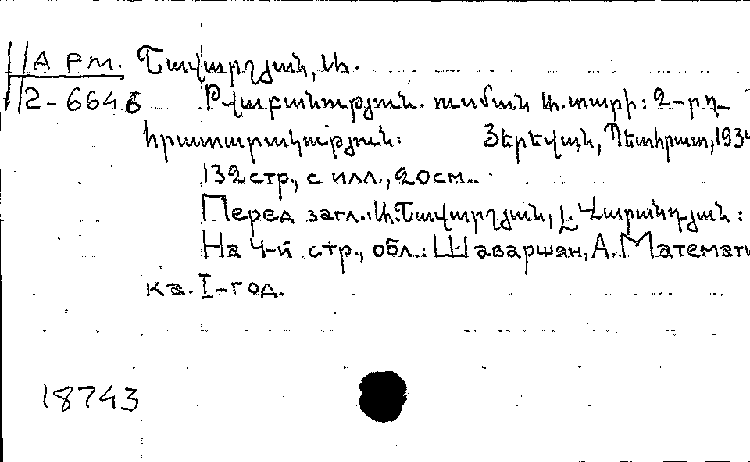 Арм. Շավարշյան, Ա.
2-6646 Թվաբանություն. ուսման Ա. տարի: 2-րդ
հրատարակություն: Յերեվան, Պետհրատ, 193
132 стр., с илл., 20 см.
Перед загл.: Ա. Շավարշյան, Լ. Վարանդյան:
На 4-й стр., обл.: Шаваршан, А. Математи
ка. I-год.
18743